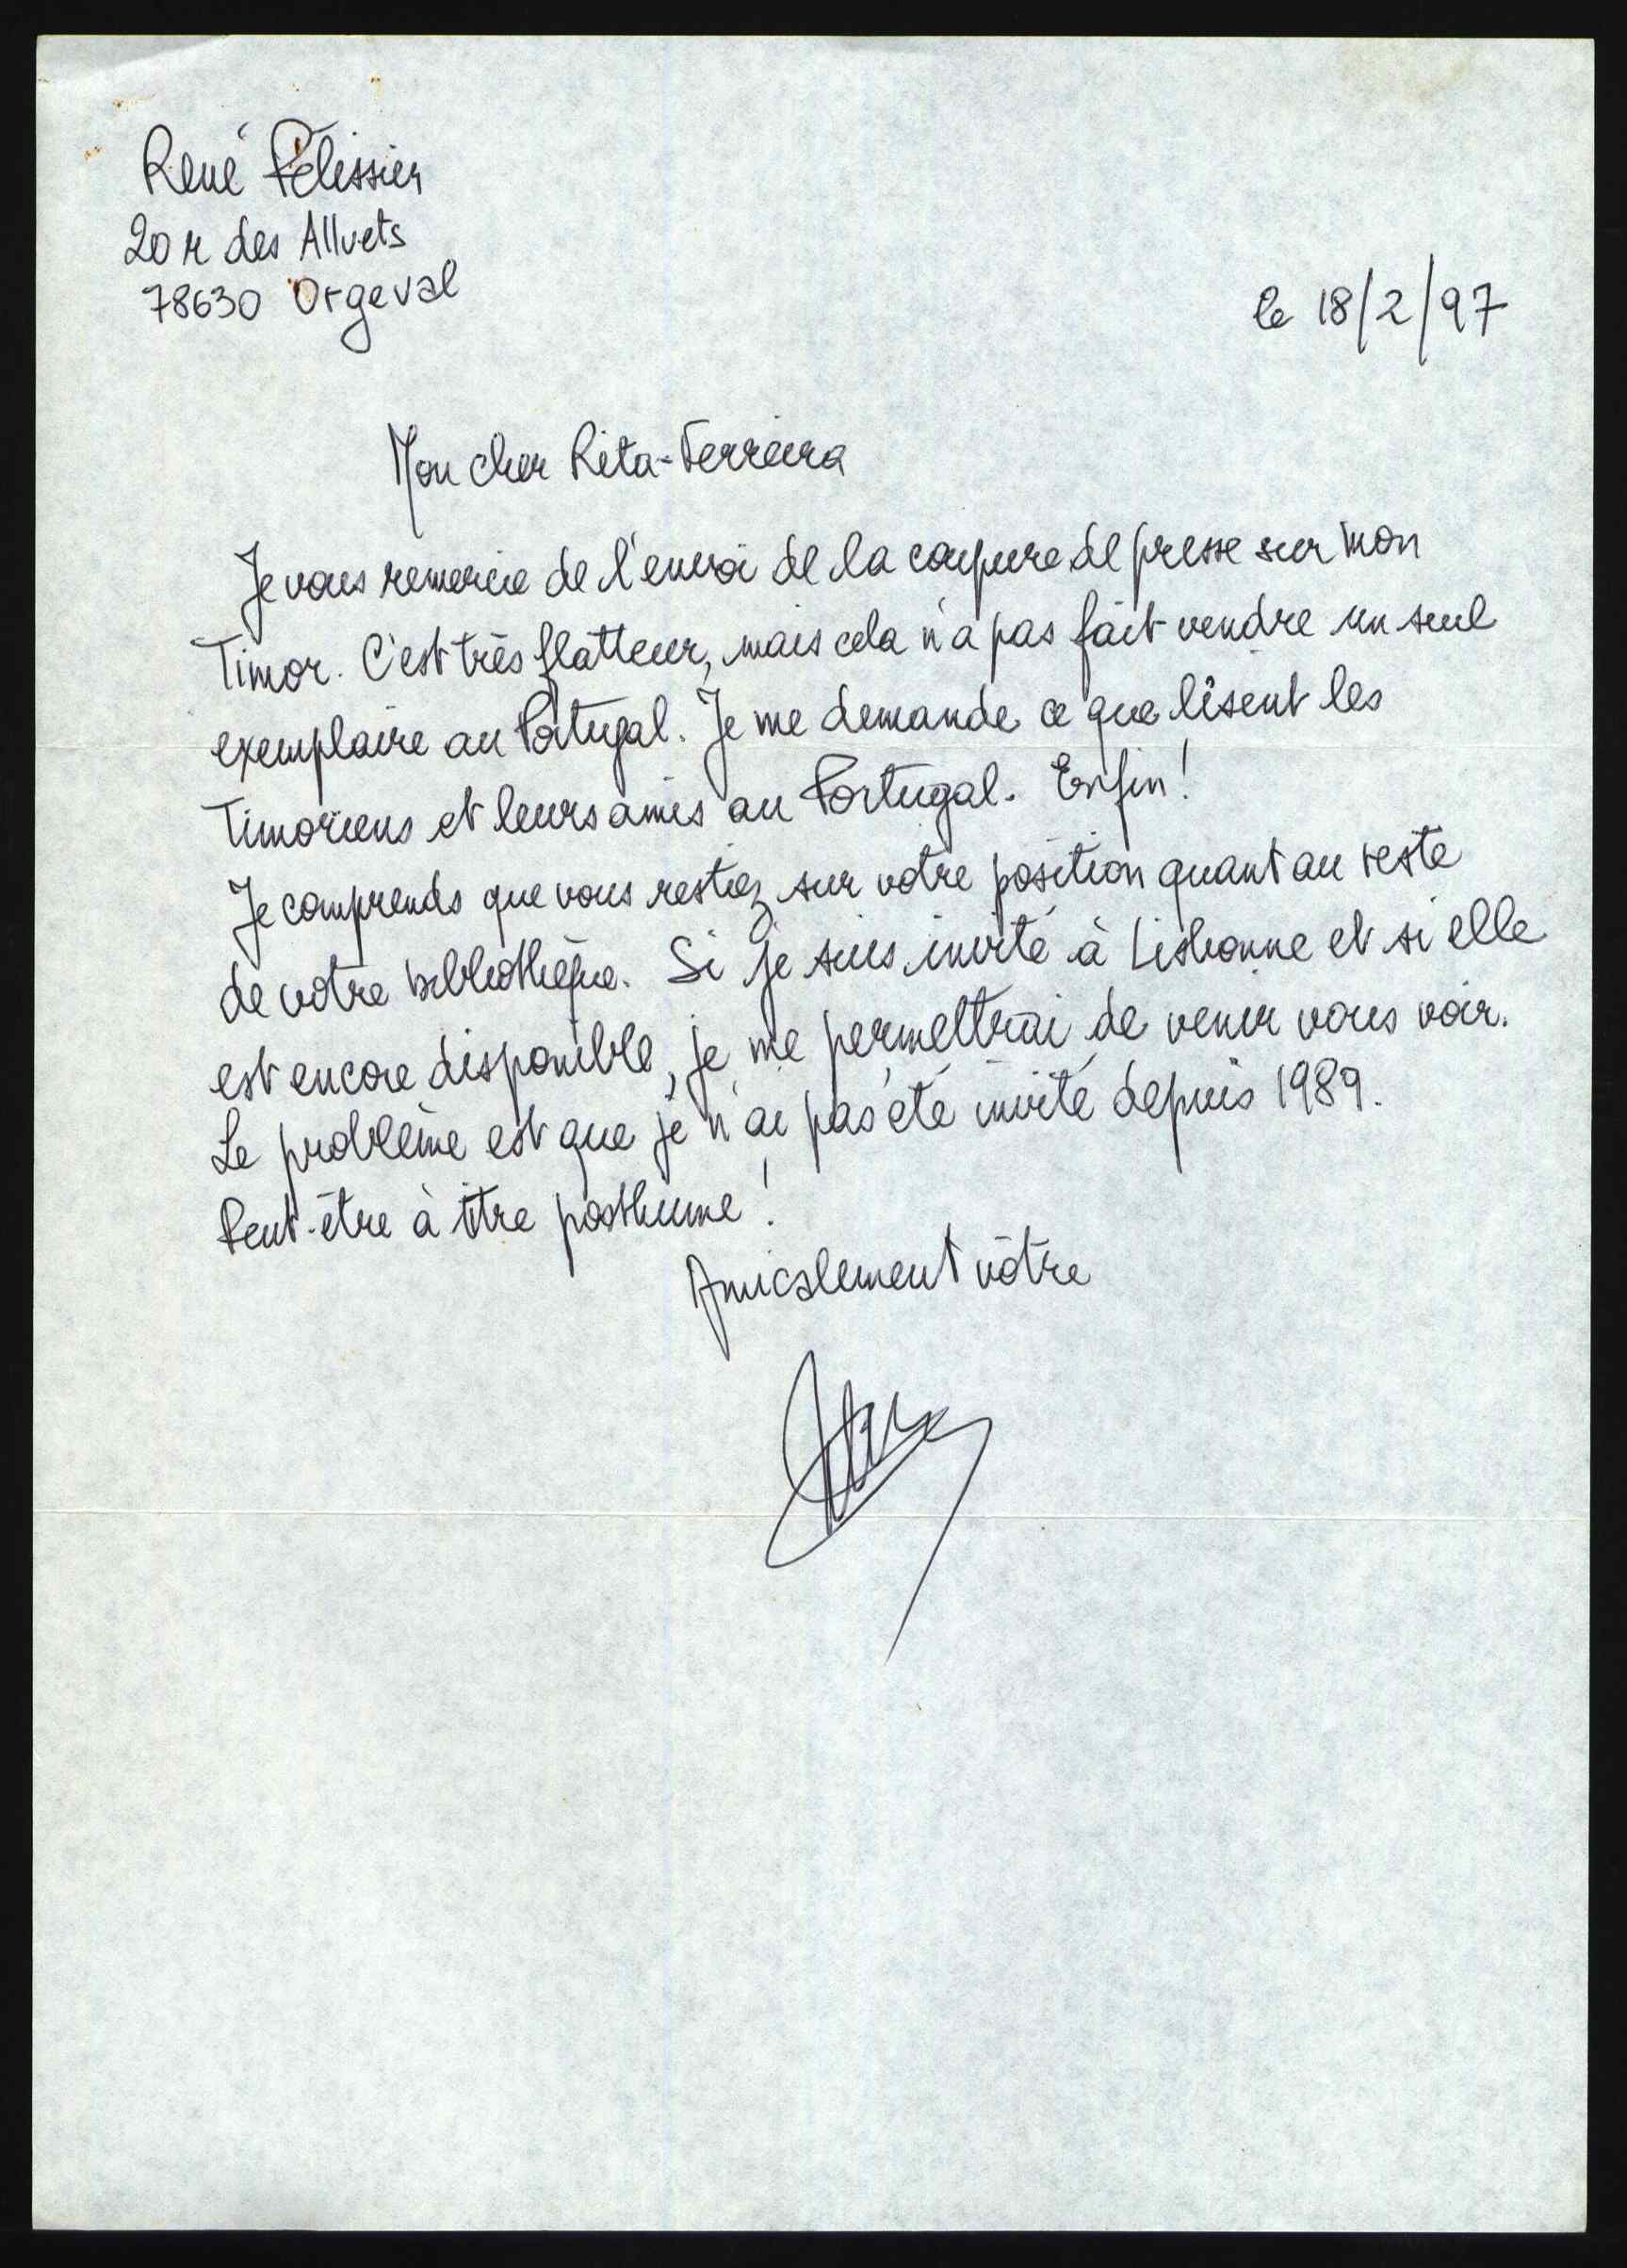 René Pélissier
20 r des Alluets
78630 Orgeval
le 18/2/97
Mon cher Rita-Ferreira
Je vous remercie de l'envoi de la coupure de presse sur mon
Timor. C'est très flatteur, mais cela n'a pas fait vendre un seul
exemplaire au Portugal. Je me demande ce que lisent les
Timoriens et leurs amis au Portugal. Enfin!
Je comprends que vous restiez sur votre position quant au reste
de votre bibliothèque. Si je suis invité à Lisbonne et si elle
est encore disponible, je me permettrai de venir vous voir.
Le problème est que je n'ai pas été invité depuis 1989.
Peut-être à titre posthume!
Amicalement vôtre